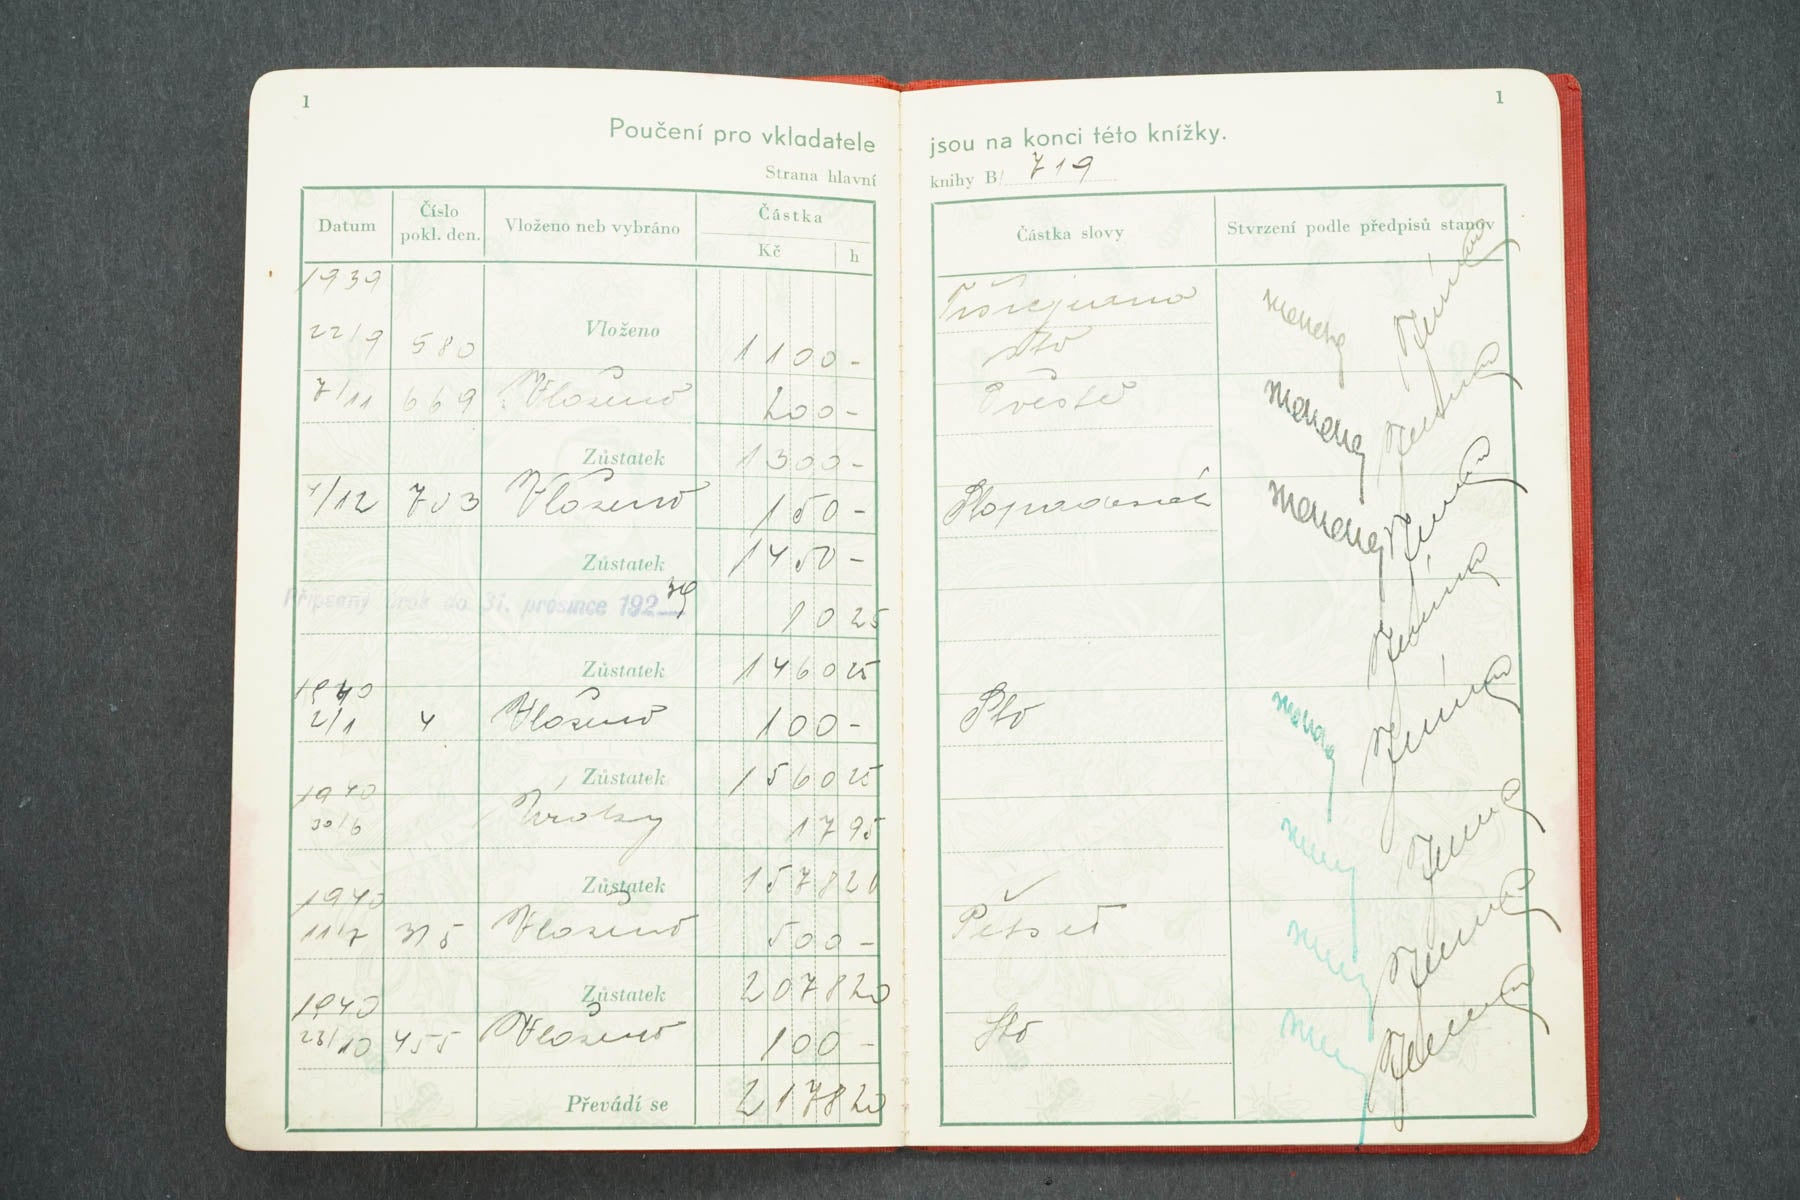 1
1
Poučení pro vkladatele jsou na konci této knížky.
Strana hlavní knihy B/ 719
Datum Číslo pokl. den. Vloženo neb vybráno Částka Kč h Částka slovy Stvrzení podle předpisů stanov
1939
22/9 580 Vloženo 1100 -
sto
7/11 669 Vloženo 200 - Dvěstě
Zůstatek 1300 -
4/12 703 Vloženo 150 - Stopadesát
Zůstatek 1450 -
Připsaný úrok do 31. prosince 192 39 10 25
Zůstatek 1460 25
1940
2/1 4 Vloženo 100 - Sto
Zůstatek 1560 25
1940
30/6 Úroky 17 95
Zůstatek 1578 20
1940
11/7 315 Vloženo 500 - Pětset
Zůstatek 2078 20
1940
23/10 455 Vloženo 100 - Sto
Převádí se 2178 20